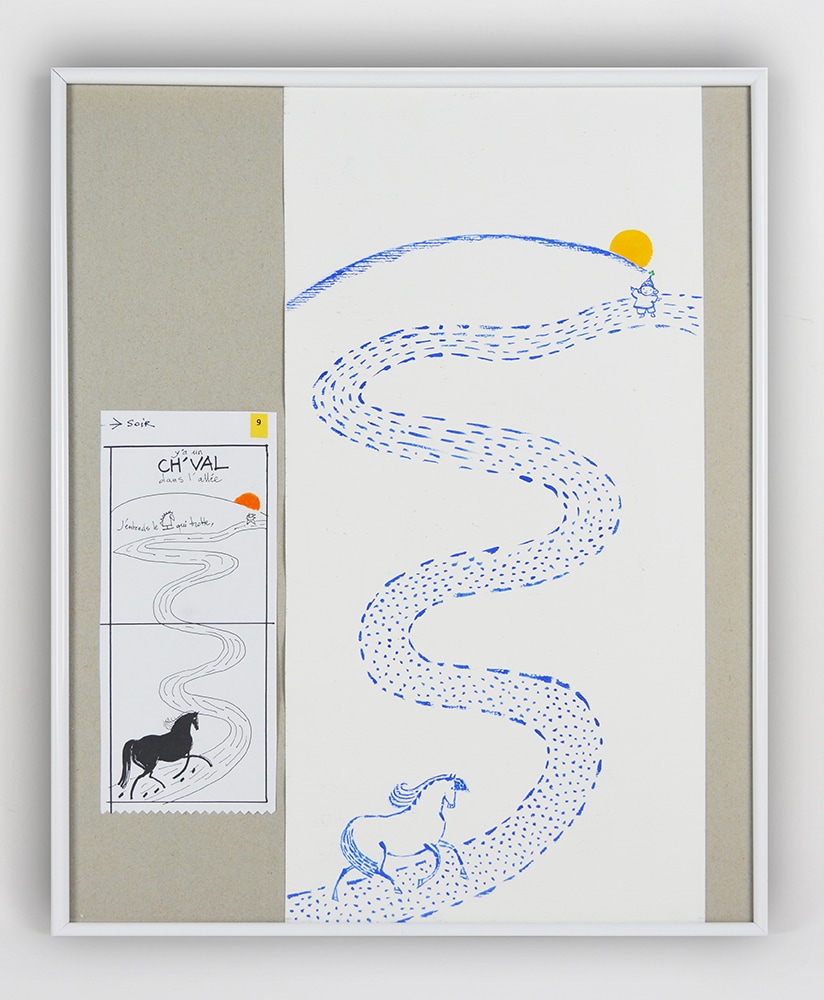 → SOIR
9
y'a un
CH'VAL
dans l'allée
J'entends le qui trotte,